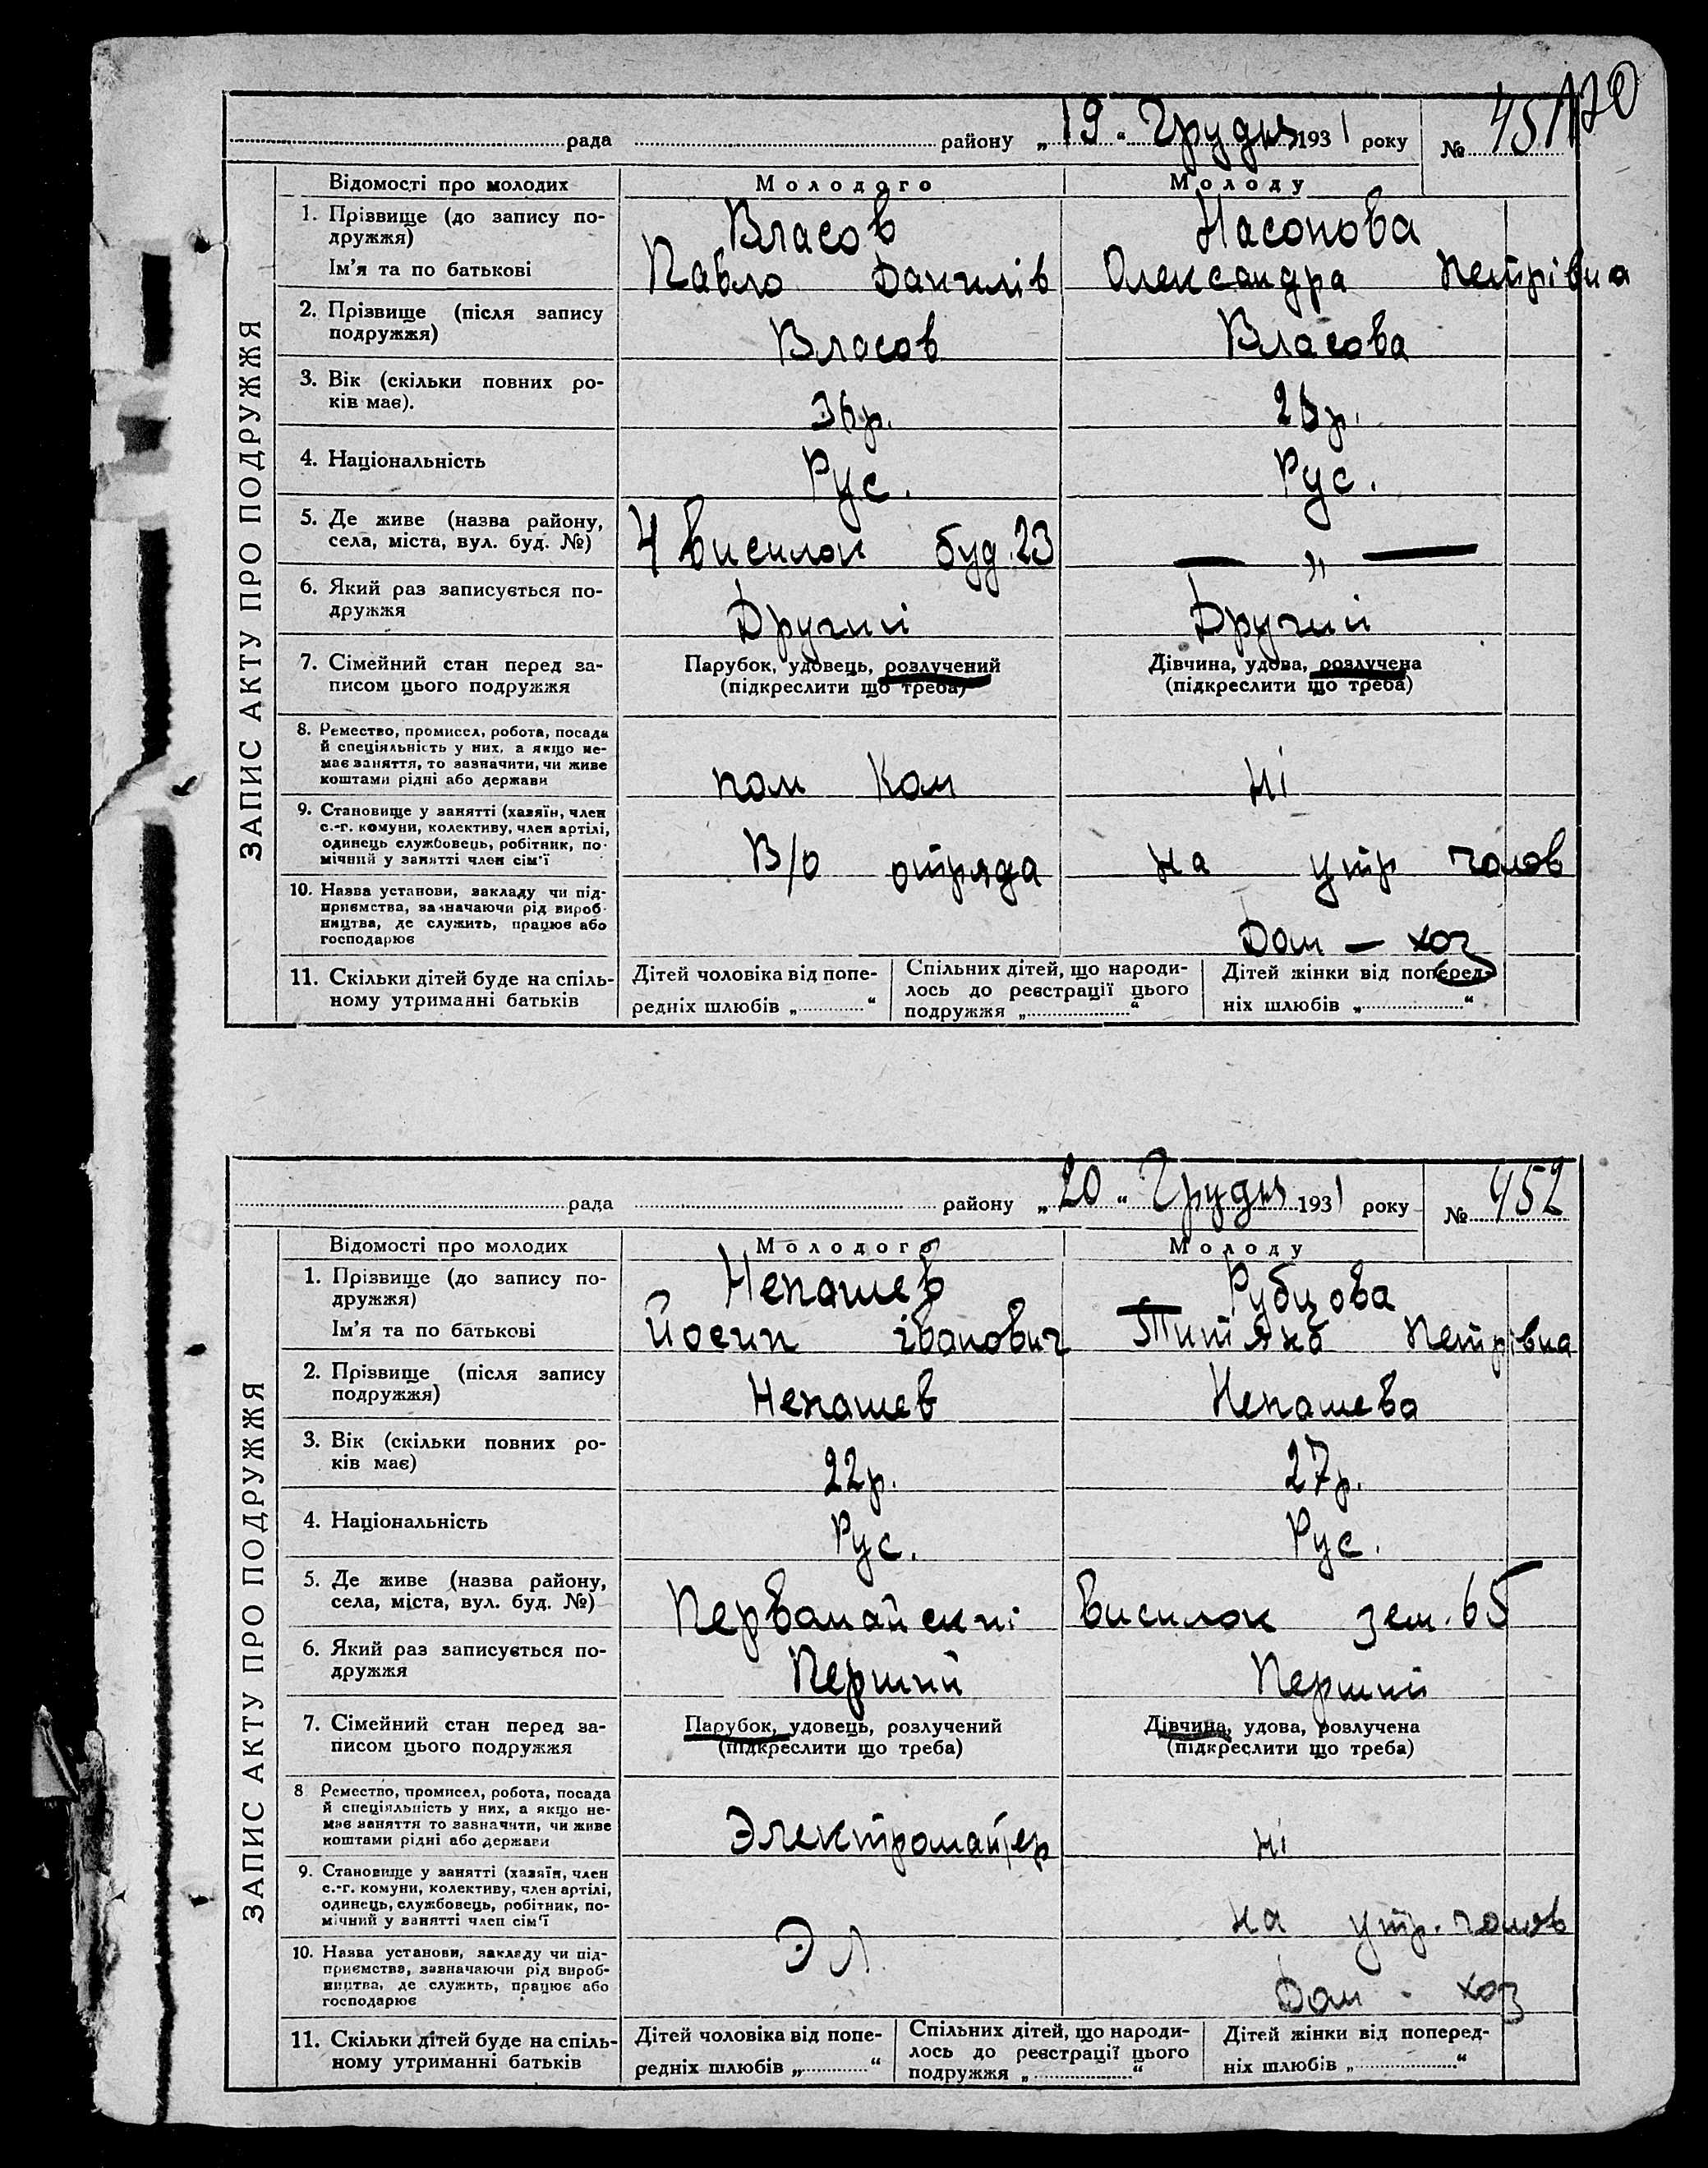 170
рада района „19“ Грудня 1931 року № 451
Відомості про молодих Молодого Молоду
ЗАПИС АКТУ ПРО ПОДРУЖЖЯ
1. Прізвище (до запису по-
дружжя)
Власов Насонова
Ім'я та по батькові
Павло Данилів Олександра Петрівна
2. Прізвище (після запису
подружжя)
Власов Власова
3. Вік (скільки повних ро-
ків має).
36р. 23р.
4. Національність
Рус. Рус.
5. Де живе (назва району,
села, міста, вул. буд. №)
4 висилок буд. 23 — „ —
6. Який раз записується по-
дружжя
Другий Другий
7. Сімейний стан перед за-
писом цього подружжя
Парубок, удовець, розлучений
(підкреслити що треба)
Дівчина, удова, розлучена
(підкреслити що треба)
8. Ремество, промисел, робота, посада
й спеціяльність у них, а якщо не-
має заняття, то зазначити, чи живе
коштами рідні або держави
пом Ком Ні
9. Становище у занятті (хазяїн, член
с.-г. комуни, колективу, член артілі,
одинець службовець, робітник, по-
мічний у занятті член сім'ї
В/о отряда на утр чолов
10. Назва установи, закладу чи під-
приємства, зазначаючи рід вироб-
ництва, де служить, працює або
господарює
Дом — хоз
11. Скільки дітей буде на спіль-
ному утриманні батьків
Дітей чоловіка від попе-
редніх шлюбів „ “
Спільних дітей, що народи-
лось до реєстрації цього
подружжя „ “
Дітей жінки від поперед-
ніх шлюбів „ “
рада району „20“ Грудня 1931 року № 452
Відомості про молодих Молодого Молоду
ЗАПИС АКТУ ПРО ПОДРУЖЖЯ
1. Прізвище (до запису по-
дружжя)
Ненашев Рубцова
Ім'я та по батькові
Йосип іванович Тит'яна Петрівна
2. Прізвище (після запису
подружжя)
Ненашев Ненашева
3. Вік (скільки повних ро-
ків має)
22р. 27р.
4. Національність
Рус. Рус.
5. Де живе (назва району,
села, міста, вул. буд. №)
Первомайский висилок зем. 65
6. Який раз записується по-
дружжя
Перший Перший
7. Сімейний стан перед за-
писом цього подружжя
Парубок, удовець, розлучений
(підкреслити що треба)
Дівчина, удова, розлучена
(підкреслити що треба)
8 Ремество, промисел, робота, посада
й спеціяльність у них, а якщо не-
має заняття то зазначити, чи живе
коштами рідні або держави
Ні
9. Становище у занятті (хазяїн, член
с.-г. комуни, колективу, член артілі,
одинець, службовець, робітник, по-
мічний у занятті член сім'ї
Эл на утр. чолов
10. Назва установи, закладу чи під-
приємства, зазначаючи рід вироб-
ництва, де служить, працює або
господарює
Дом. хоз
11. Скільки дітей буде на спіль-
ному утриманні батьків
Дітей чоловіка від попе-
редніх шлюбів „ “
Спільних дітей, що народи-
лось до реєстрації цього
подружжя „ “
Дітей жінки від поперед-
ніх шлюбів „ “